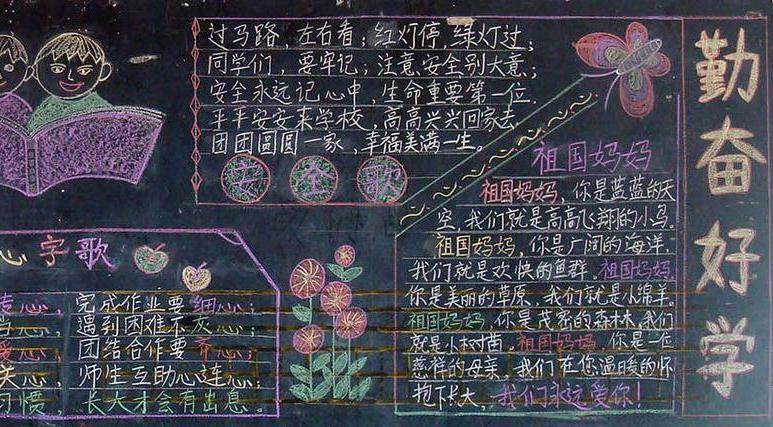 过马路，左右看；红灯停，绿灯过；
同学们，要牢记；注意安全别大意；
安全永远记心中，生命重要第一位.
平平安安来学校，高高兴兴回家去
团团圆圆一家，幸福美满一生。
安全歌
祖国妈妈
祖国妈妈，你是蓝蓝的天
空，我们就是高高飞翔的小鸟.
祖国妈妈，你是广阔的海洋.
我们就是欢快的鱼群.祖国妈妈.
你是美丽的草原，我们就是小绵羊.
祖国妈妈，你是茂密的森林，我们
就是小树苗，祖国妈妈，你是一位
慈祥的母亲，我们在您温暖的怀
抱下长大，我们永远爱你！
勤奋好学
心字歌
心，完成作业要细心；
心，遇到困难不灰心；
爱心，团结合作要齐心；
关心，师生互助心连心；
习惯，长大才会有出息。